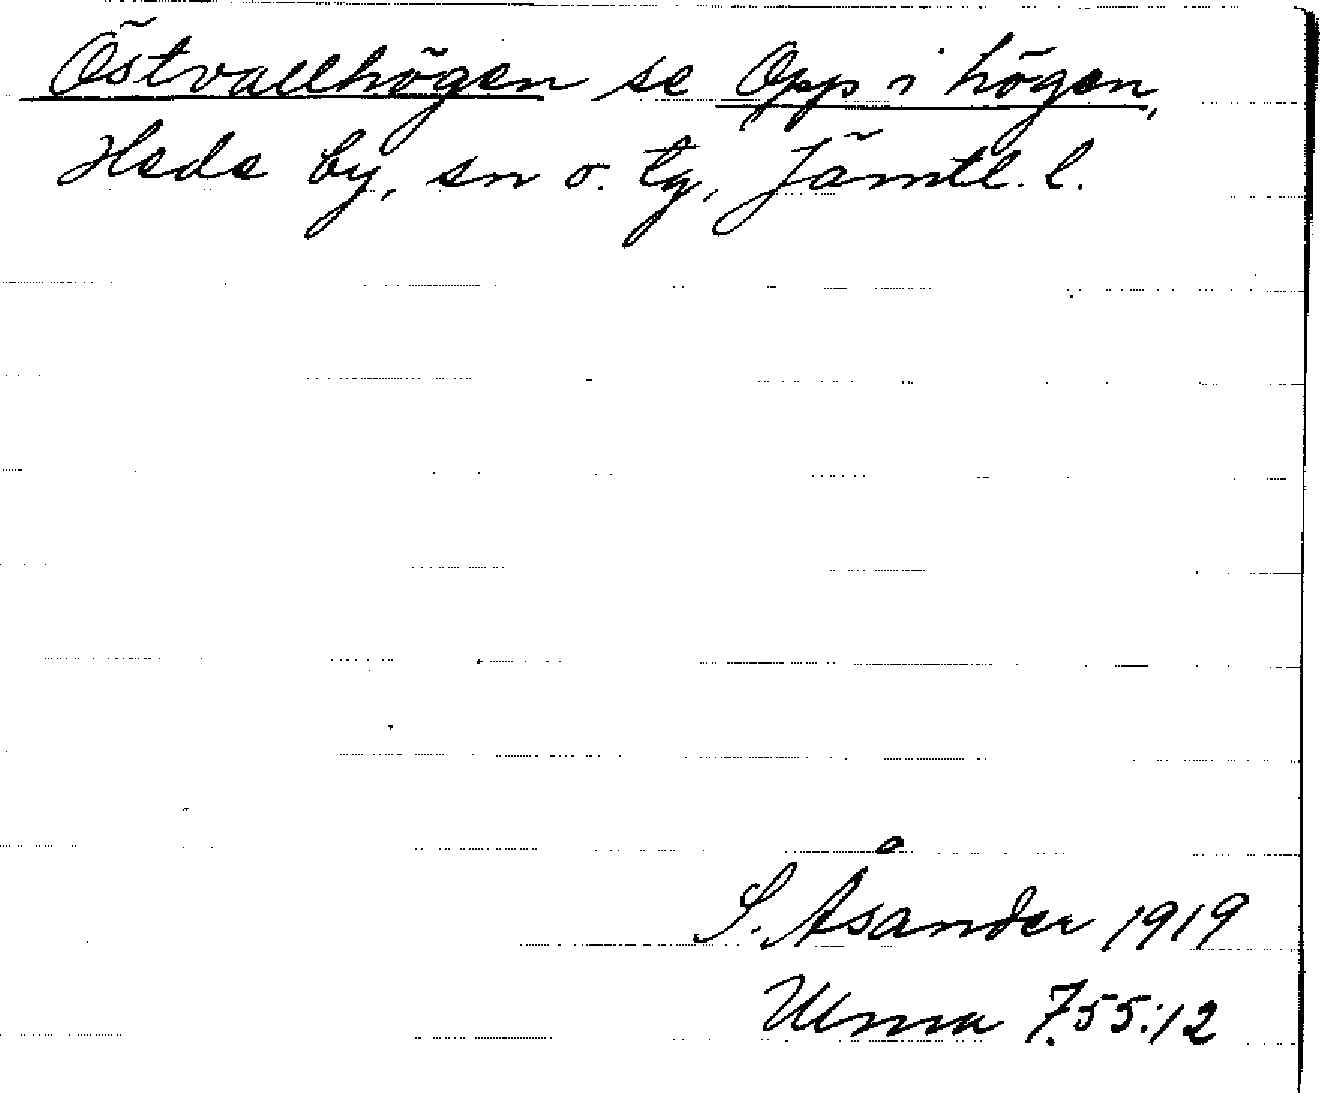 Östvallhögen se Opp i högen,
Hede by, sn o. tg, Jämtl. l.
S. Åsander 1919
Ulma 755:12